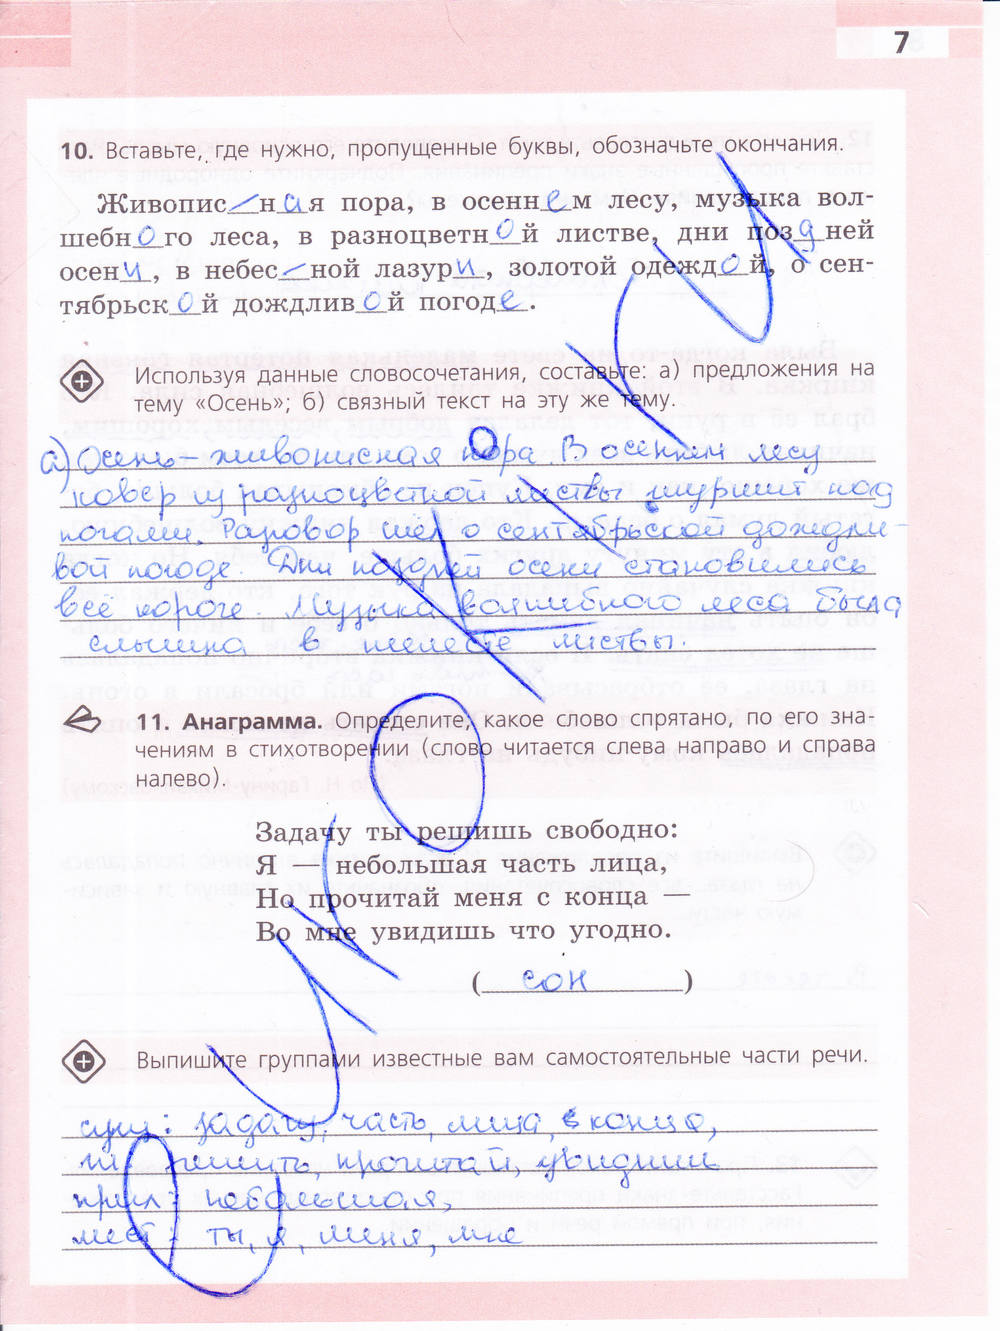 7
10. Вставьте, где нужно, пропущенные буквы, обозначьте окончания.
Живопис–ная пора, в осеннем лесу, музыка вол-
шебного леса, в разноцветной листве, дни поздней
осени, в небес–ной лазури, золотой одеждой, о сен-
тябрьской дождливой погоде.
Используя данные словосочетания, составьте: а) предложения на
тему «Осень»; б) связный текст на эту же тему.
а) Осень – живописная пора. В осеннем лесу
ковер из разноцветной листвы шуршит под
ногами. Разговор шёл о сентябрьской дождли-
вой погоде. Дни поздней осени становились
всё короче. Музыка волшебного леса была
слышна в шелесте листвы.
11. Анаграмма. Определите, какое слово спрятано, по его зна-
чениям в стихотворении (слово читается слева направо и справа
налево).
Задачу ты решишь свободно:
Я — небольшая часть лица,
Но прочитай меня с конца —
Во мне увидишь что угодно.
( сон )
Выпишите группами известные вам самостоятельные части речи.
сущ: задачу, часть, лица, с конца,
решишь, прочитай, увидишь
прил: небольшая,
мест: ты, я, меня, мне